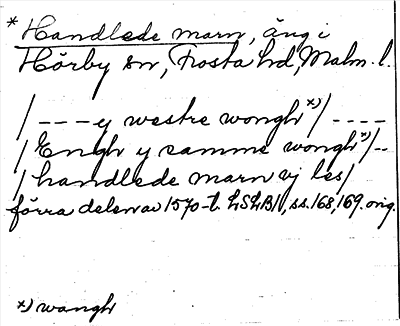 * Handlede marn, äng i
Hörby sn, Frosta hd, Malm. l.
/ - - - y westre wongh x) / - - - -
/ Engh y samme wongh x) / - -
/ handlede marn vj les /
förra delen av 1570-t. LSLB1, ss. 168, 169. orig.
x) wangh